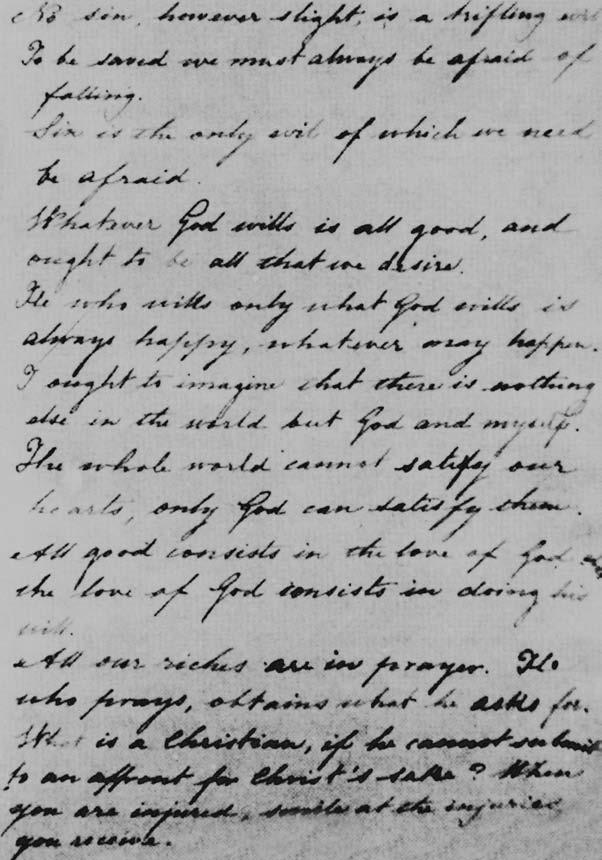 No sin, however slight, is a trifling evil
To be saved we must always be afraid of
falling.
Sin is the only evil of which we need
be afraid.
Whatever God wills is all good, and
ought to be all that we desire.
He who wills only what God wills is
always happy, whatever may happen.
I ought to imagine that there is nothing
else in the world but God and myself.
The whole world cannot satisfy our
hearts, only God can satisfy them.
All good consists in the love of God
the love of God consists in doing his
will.
All our riches are in prayer. He
who prays, obtains what he asks for.
What is a Christian, if he cannot submit
to an affront for Christ's sake? When
you are injured, smile at the injuries
you receive.